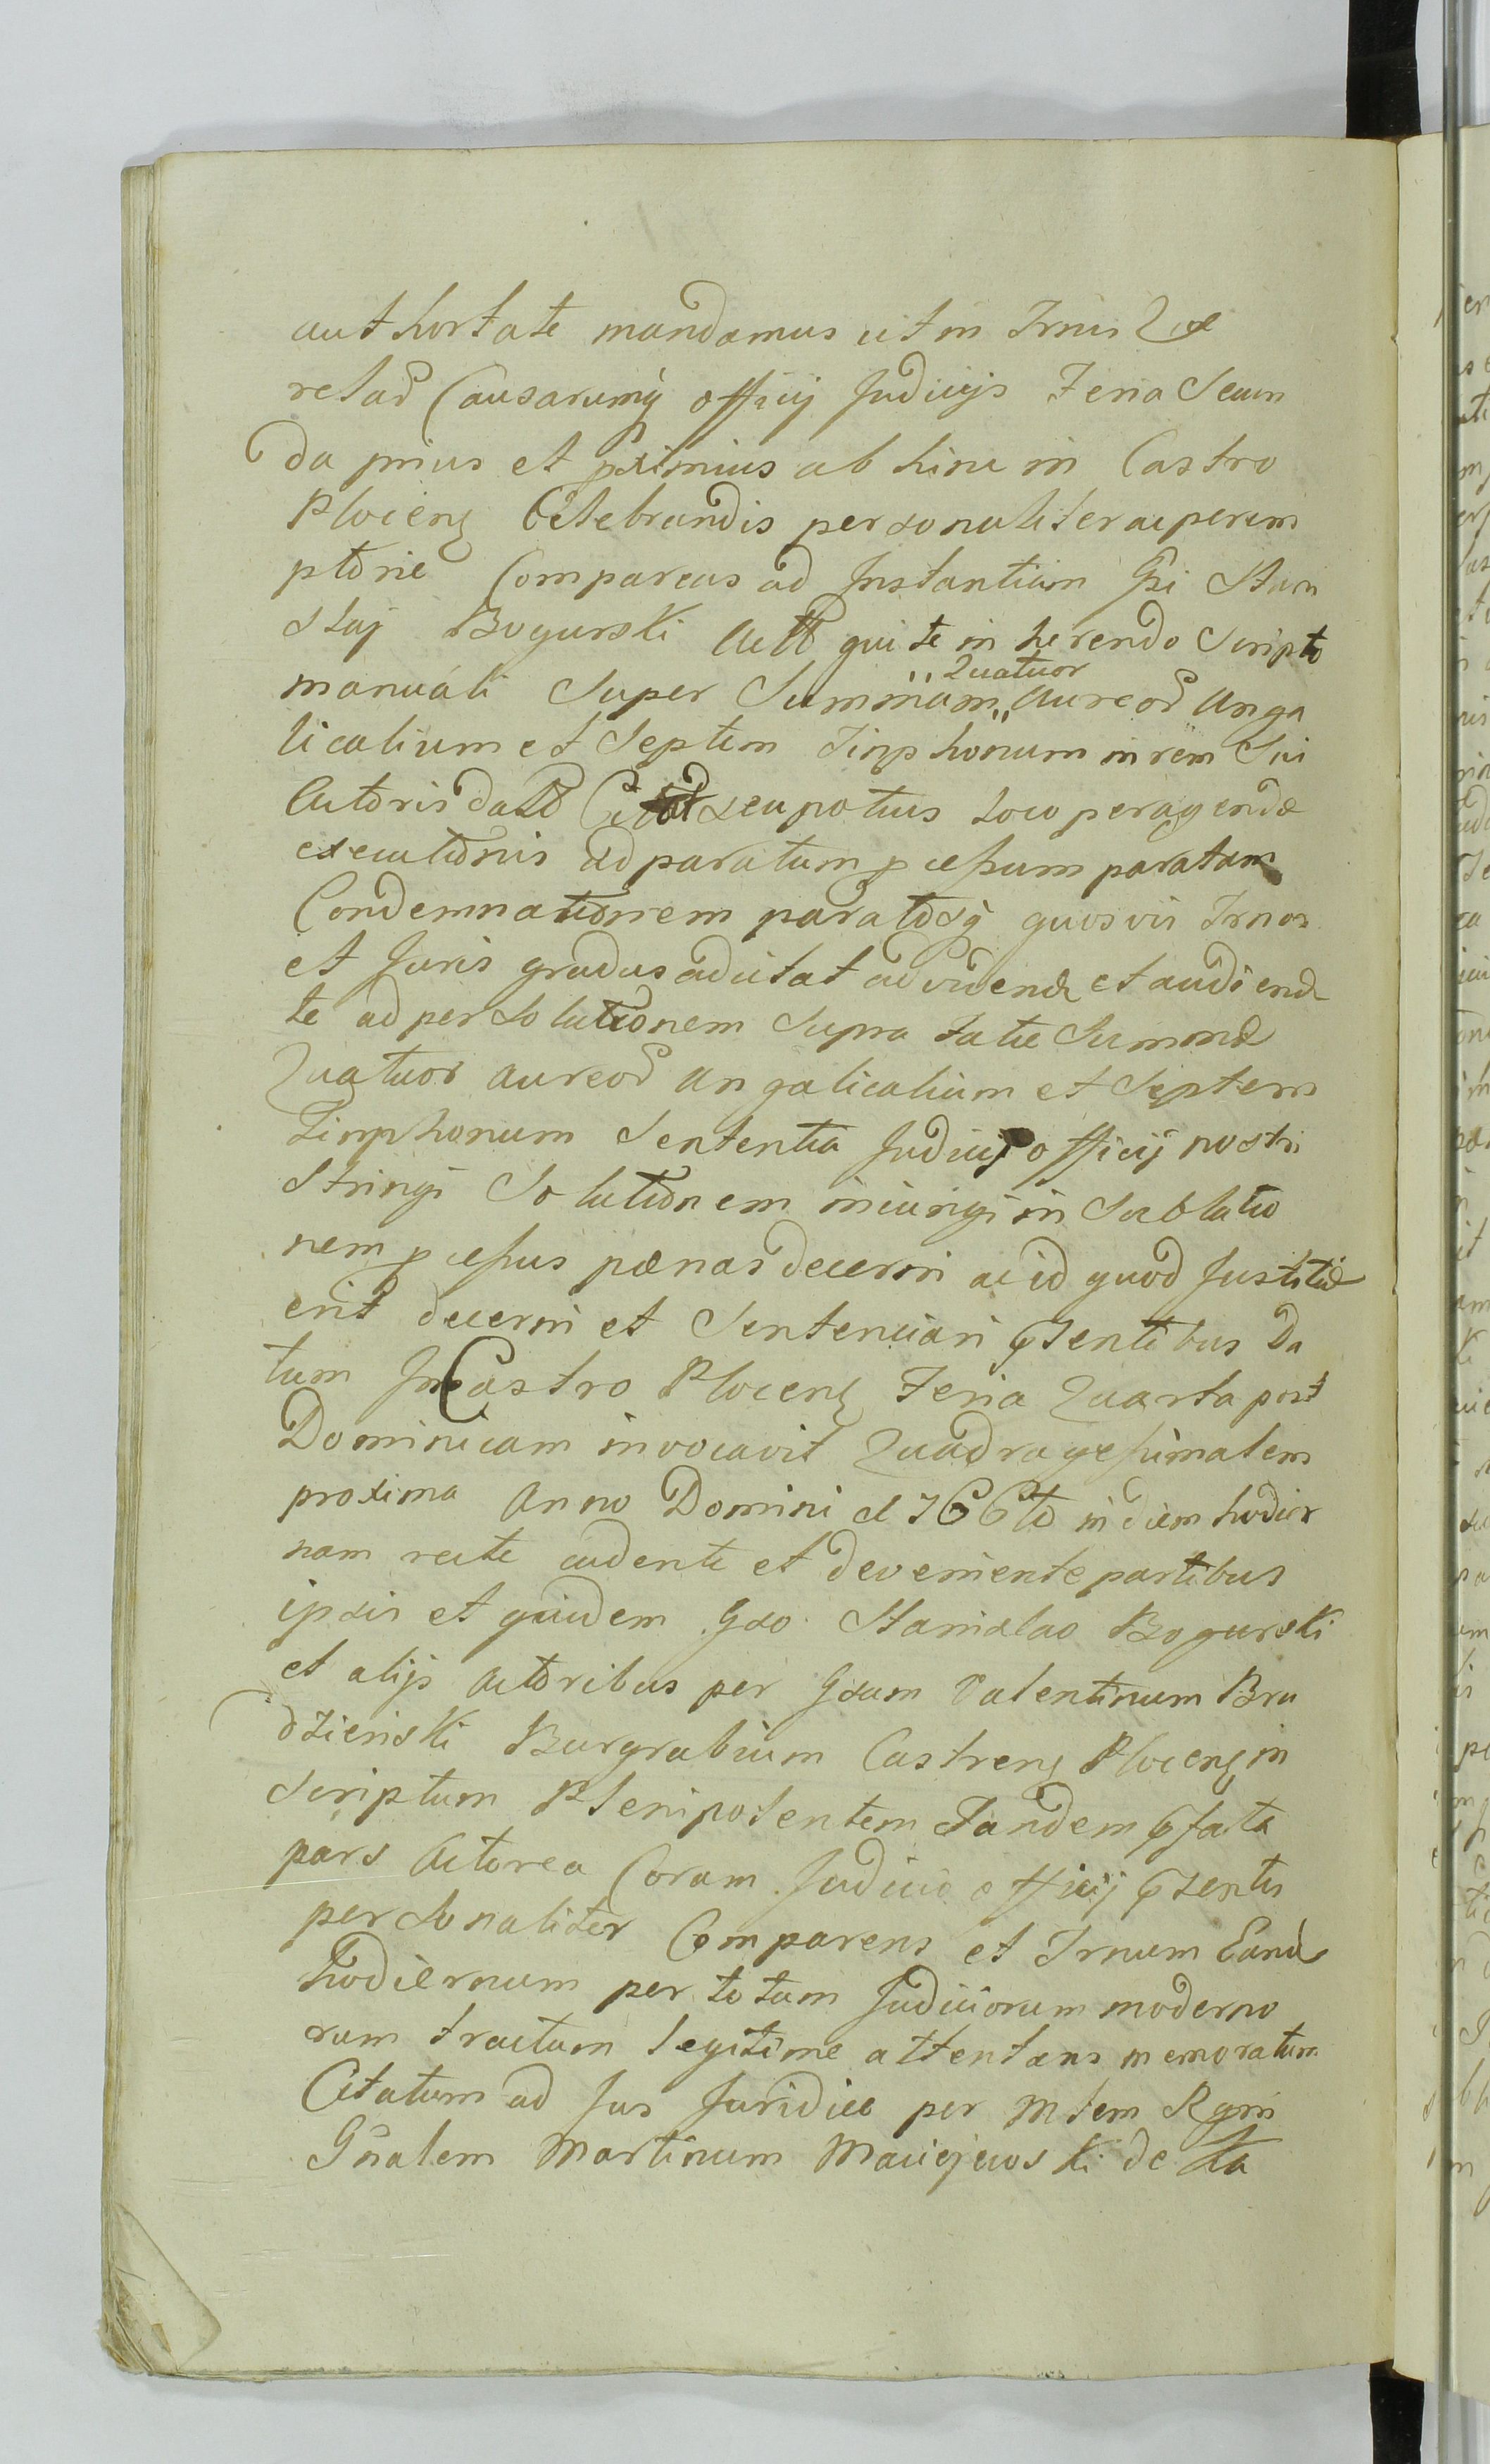 authortate mandamus ut in Trnis Que
relad Causarumq officij Judicijs Feria Secun
da prius et pximius ab hinc in Castro
Plocens Celebrandis personaliter ac perem
ptorie Compareas ad Instantiam Gsi Stani
slaj Bogurski Actt qui te in herendo Scripto
manuali Super Summam Quatuor Aureod Anga
licalium et Septem Timphonum in rem Sui
Actoris datt Citat seu potius loco peragendæ
executionis ad paratum pcessum paratam
Condemnationem paratosq quosvis Trnos
et Juris gradus adcitat ad vidend et audiend
te ad persolutionem Supra fatæ Summæ
Quatuor aureod Angalicalium et Septem
Timphonum Sententia Judicij officij nostri
Stringi Solutionem iniungi in Sublatio
nem pcessus pænas decerni ac id quod Justitiæ
erit decerni et Sentenciari pzentibus Da
tum In Castro Plocens Feria Quarta post
Dominicam invocavit Quadragesimalem
proxima Anno Domini 1766to in diem hodier
nam recte cadente et deveniente partibus
ipsis et quidem Gso Stanislao Bogurski
et alijs Actoribus per Gsum Valentinum Bru
dzienski Burgrabium Castrens Plocens in
scriptum Plenipotentem Tandem pfata
pars Actorea Coram Judicio officij pzentis
personaliter Comparens et Trnum Eund
hodiernum per totum Judiciorum moderno
rum tractum legitime attentans memoratum
Citatum ad Jus Juridice per Mtem Rgni
Gnalem Martinum Maciejewski de Ka